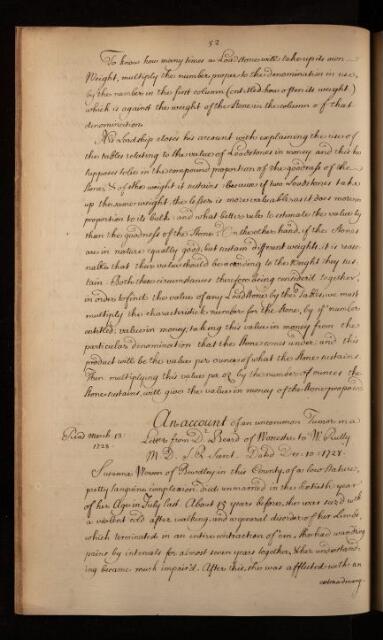 52
To know how many times a Loadstone will take up its own
Weight, multiply the number proper to the denomination in use,
by the number in the first column (entitled how often its weight)
which is against the weight of the Stone in the column of that
denomination.
His Lordship closes his account with explaining the use of
the tables relating to the value of Loadstones in money and this he
supposes to lie in the compound proportion of the goodness of the
Stone & of the weight it sustains: because if two Loadstones take
up the same weight, the lesser is more valuable, as it does more in
proportion to its bulk: and what better rule to estimate the value by
than the goodness of the Stone? On the other hand, if the Stones
are in nature equally good, but sustain different weights, it is reaso-
nable that their value should be according to the Weight they sus-
tain. Both these circumstances therefore being consider'd together,
in order to find the value of any Loadstone by these Tables, we must
multiply the characteristick number for the Stone, by ye number
entitled, value in money; taking this value in money from the
particular denomination that the Stone comes under: and this
product will be the value per ounce of what the Stone sustains.
Then multiplying this value per oz by the number of ounces the
Stone sustains, will give the value in money of the Stone proposed.
An account of an uncommon Tumor in a
Read March 13. Letter from Dr. Beard of Worcester to W. Rutty
1728. M. D. S. R. Secret. Dated Dec. 10. 1728.
Susanna of in this County, of a low Stature,
pretty sanguine complexion, died unmarried in the year
of her Age in July last. About 15 years before, she was seiz'd with
a violent cold after walking, and a general disorder of her Limbs,
which terminated in an entire contraction of em. She had wand'ring
pains by intervals for almost seven years together, & her understand-
ing became much impair'd. After this, she was afflicted with an
extraordinary